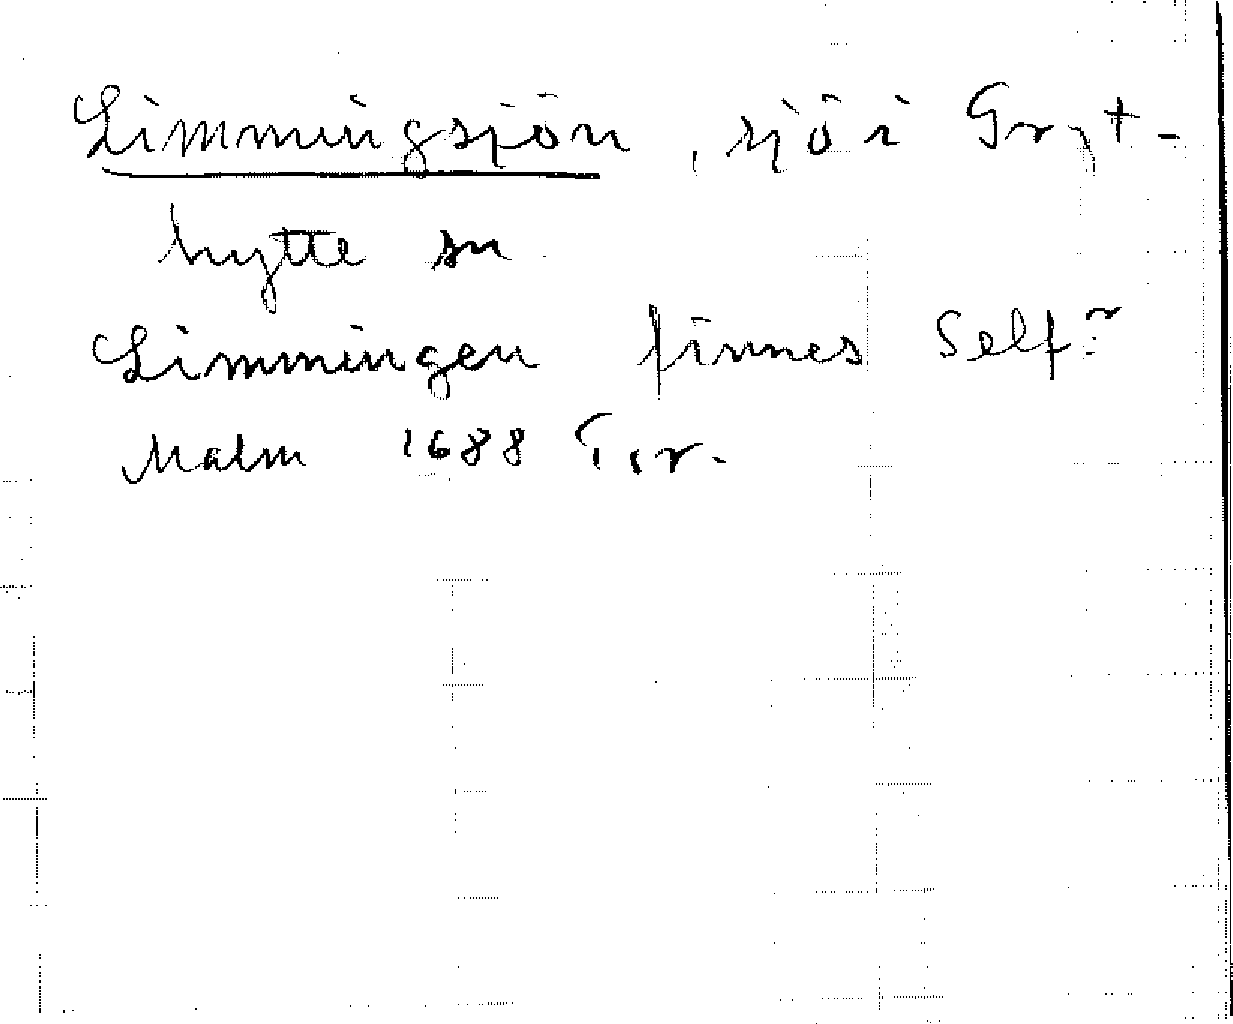 Limmingsjön, sjö i Gryt-
hytte sn
Limmingen finnes Self:r
Malm 1688